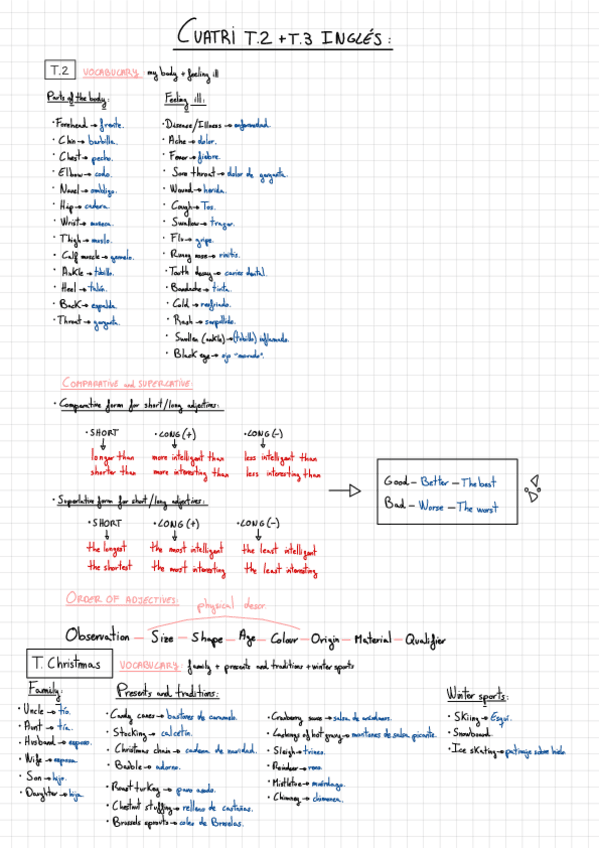 CUATRI T.2 + T.3 INGLÉS:
T.2 VOCABULARY: my body + feeling ill
Parts of the body:
· Forehead → frente.
· Chin → barbilla.
· Chest → pecho.
· Elbow → codo.
· Navel → ombligo.
· Hip → cadera.
· Wrist → muñeca.
· Thigh → muslo.
· Calf muscle → gemelo.
· Ankle → tobillo.
· Heel → talón.
· Back → espalda.
· Throat → garganta.
Feeling ill:
· Disease/Illness → enfermedad.
· Ache → dolor.
· Fever → fiebre.
· Sore throat → dolor de garganta.
· Wound → herida.
· Cough → Tos.
· Swallow → tragar.
· Flu → gripe.
· Runny nose → rinitis.
· Tooth decay → caries dental.
· Bandache → tirita.
· Cold → resfriado.
· Rash → sarpullido.
· Swollen (ankle) → (tobillo) inflamado.
· Black eye → ojo "morado".
COMPARATIVE and SUPERLATIVE:
· Comparative form for short/long adjectives:
· SHORT · LONG (+) · LONG (-)
longer than more intelligent than less intelligent than
shorter than more interesting than less interesting than
Good - Better - The best
Bad - Worse - The worst
· Superlative form for short/long adjectives:
· SHORT · LONG (+) · LONG (-)
the longest the most intelligent the least intelligent
the shortest the most interesting the least interesting
ORDER OF ADJECTIVES: physical descr.
Observation - Size - Shape - Age - Colour - Origin - Material - Qualifier
T. Christmas VOCABULARY: family + presents and traditions + winter sports
Family:
· Uncle → tío.
· Aunt → tía.
· Husband → esposo.
· Wife → esposa.
· Son → hijo.
· Daughter → hija.
Presents and traditions:
· Candy canes → bastones de caramelo.
· Stocking → calcetín.
· Christmas chain → cadena de navidad.
· Bauble → adorno.
· Roast turkey → pavo asado.
· Chestnut stuffing → relleno de castañas.
· Brussels sprouts → coles de Bruselas.
· Cranberry sauce → salsa de arándanos.
· of hot gravy → montones de salsa picante.
· Sleigh → trineo.
· Reindeer → reno.
· Mistletoe → muérdago.
· Chimney → chimenea.
Winter sports:
· Skiing → Esquí.
· Snowboard.
· Ice skating → patinaje sobre hielo.